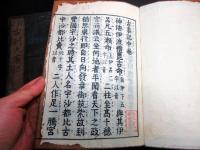 古事記中卷
神倭伊波禮毘古命與其
伊呂兄五瀬命二柱坐高千穗
宮而議云坐何地者平聞看天下之政
猶思東行即自日向發幸御筑紫故到
豐國宇沙之時其土人名宇沙都比古
宇沙都比賣二人作足一騰宮